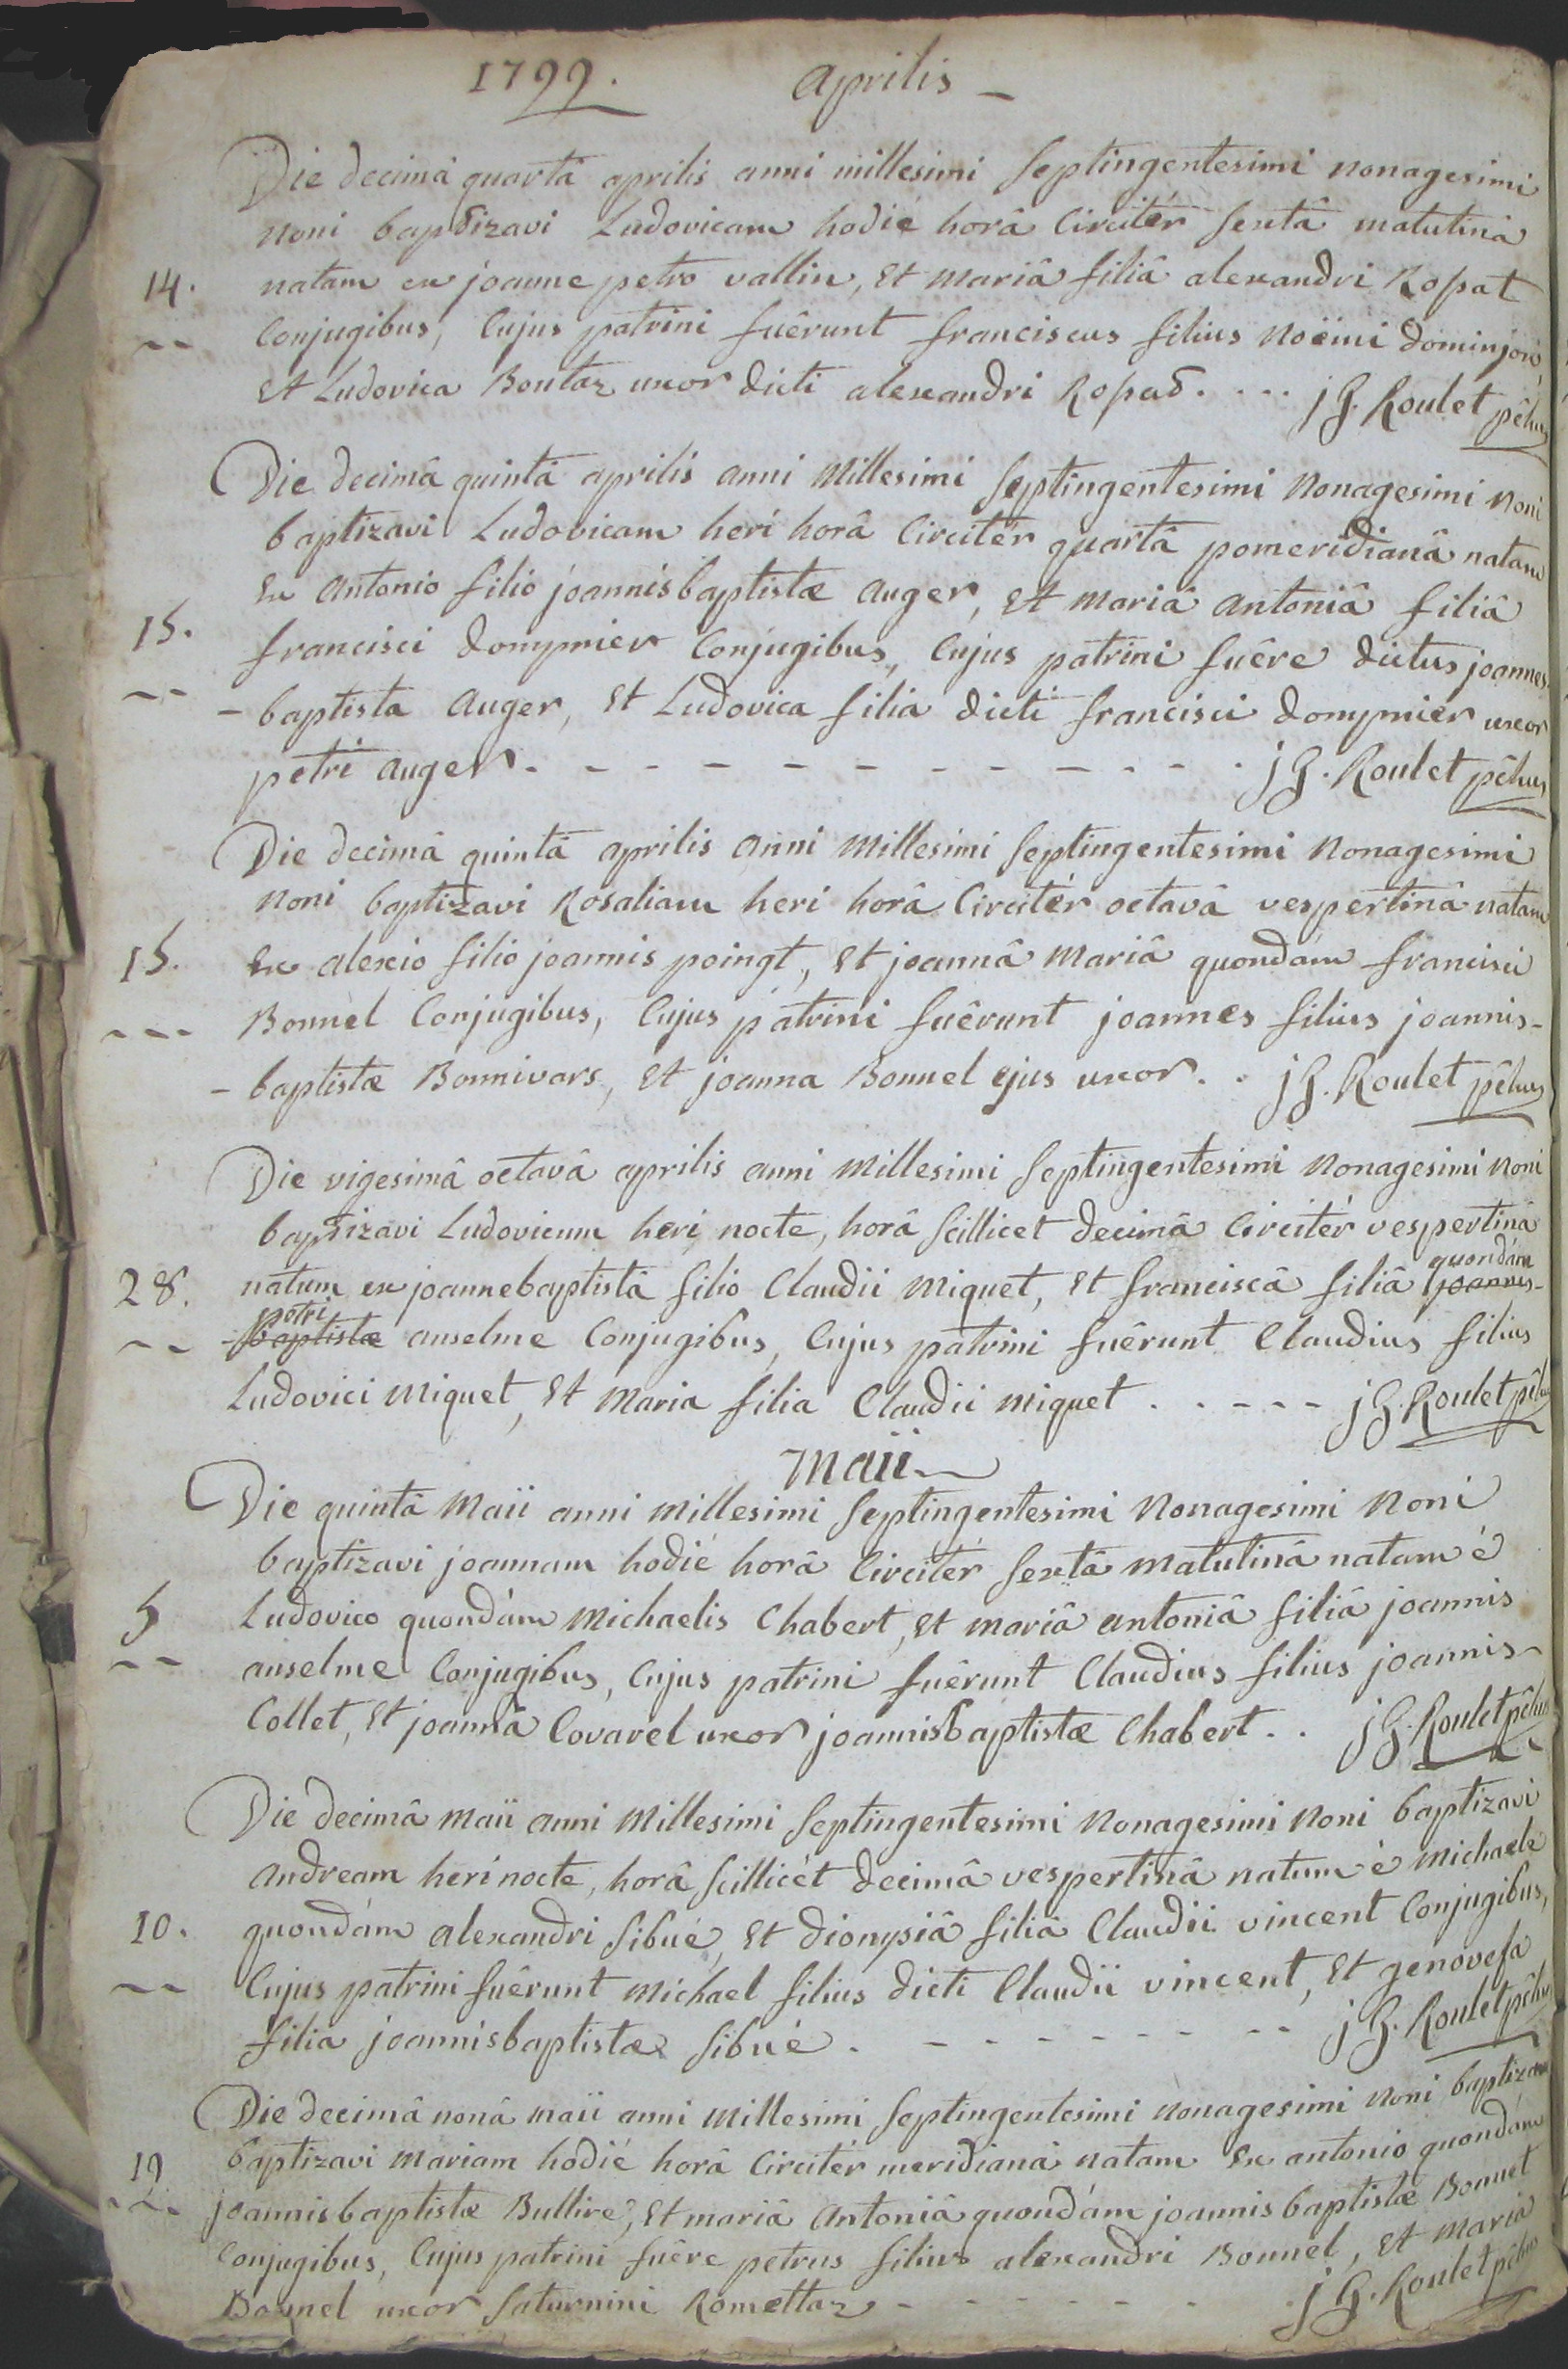 1799. aprilis
Die decimâ quartâ aprilis anni millesimi septingentesimi nonagesimi
noni baptizavi Ludovicam hodiè horâ circitèr sextâ matutinâ
14. natam ex joanne petro vallin, et mariâ filiâ alexandri Ropat
conjugibus, cujus patrini fuêrunt franciscus filius noëmi dominjon,
et Ludovica Boutaz uxor dicti alexandri Ropat. . . . j G. Roulet pchus
Die decimâ quintâ aprilis anni Millesimi septingentesimi Nonagesimi noni
baptizavi Ludovicam heri horâ circitèr quartâ pomeridianâ natam
Ex antonio filio joannisbaptistæ auger, et mariâ antoniâ filiâ
15. francisci donymier conjugibus, cujus patrini fuêre dictus joannes
- baptista auger, et Ludovica filia dicti francisci donymier uxor
petri auger. - - - - - - - - - - j G. Roulet pchus
Die decimâ quintâ aprilis anni Millesimi septingentesimi Nonagesimi
noni baptizavi Rosaliam heri horâ circitèr octavâ vespertinâ natam
15. Ex alexio filio joannis poingt, et joannâ mariâ quondàm francisci
Bonnel conjugibus, cujus patrini fuêrunt joannes filius joannis-
- baptistæ Bonnivars, et joanna Bonnel ejus uxor. . j G. Roulet pchus
Die vigesimâ octavâ aprilis anni Millesimi septingentesimi Nonagesimi noni
baptizavi Ludovicum heri nocte, horâ scillicet decimâ circitèr vespertinâ
quondàm
28. natum ex joannebaptistâ filio claudii Miquet, et franciscâ filiâ joannis-
petri
- baptistæ anselme conjugibus, cujus patrini fuêrunt claudius filius
Ludovici Miquet, et Maria filia claudii miquet . . - - - j G. Roulet pchus
Maii
Die quintâ Maii anni Millesimi septingentesimi Nonagesimi Noni
baptizavi joannam hodiè horâ circitèr sextâ matutinâ natam è
5 Ludovico quondàm Michaelis Chabert, et mariâ antoniâ filiâ joannis
anselme conjugibus, cujus patrini fuêrunt Claudius filius joannis
Collet, et joannâ Covarel uxor joannisbaptistæ Chabert. . j G. Roulet pchus
Die decimâ maii anni Millesimi septingentesimi Nonagesimi Noni baptizavi
andream heri nocte, horâ scillicèt decimâ vespertinâ natum è michaele
10. quondàm alexandri sibué, et dionysiâ filiâ claudii vincent conjugibus,
cujus patrini fuêrunt michael filius dicti claudii vincent, et genovefa
filia joannisbaptistæ sibué. - - - - - - j G. Roulet pchus
Die decimâ nonâ maii anni Millesimi septingentesimi nonagesimi noni baptizavi
19 baptizavi mariam hodiè horâ circitèr meridianâ natam Ex antonio quondàm
joannisbaptistæ Bullire, et mariâ antoniâ quondàm joannis baptistæ Bonnet
conjugibus, cujus patrini fuêre petrus filius alexandri Bonnel, et maria
Bonnel uxor saturnini Romettaz - - - - - j G. Roulet pchus